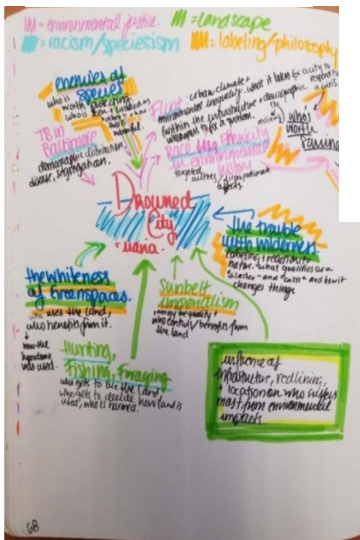 = environmental justice
= landscape
= racism/speciesism
= labeling/philosophy
enemies of
species
who is
worth protecting,
who is seen as a problem
TB in
Baltimore
demographic distribution,
disease, segregation.
Flint
urban climate +
environmental inequality - what it takes for a city to
within the infrastructure + demographic
Race and ethnicity
in environmental
who's
worth
saving
Drowned
City
mana
The trouble
with wilderness
labeling + reaction to
nature. what qualifies as a
and how it
changes things
the whiteness
of Greenspaces
who uses the land,
who benefits from it.
how the
was used.
Sunbelt
imperialism
energy inequality +
who controls/benefits from
the land
Hunting,
Fishing, Foraging
who gets to use the land,
who gets to decide how land is
used, who is harmed.
influence of
infrastructure, redlining,
+ location on who suffers
most from environmental
impacts.
68